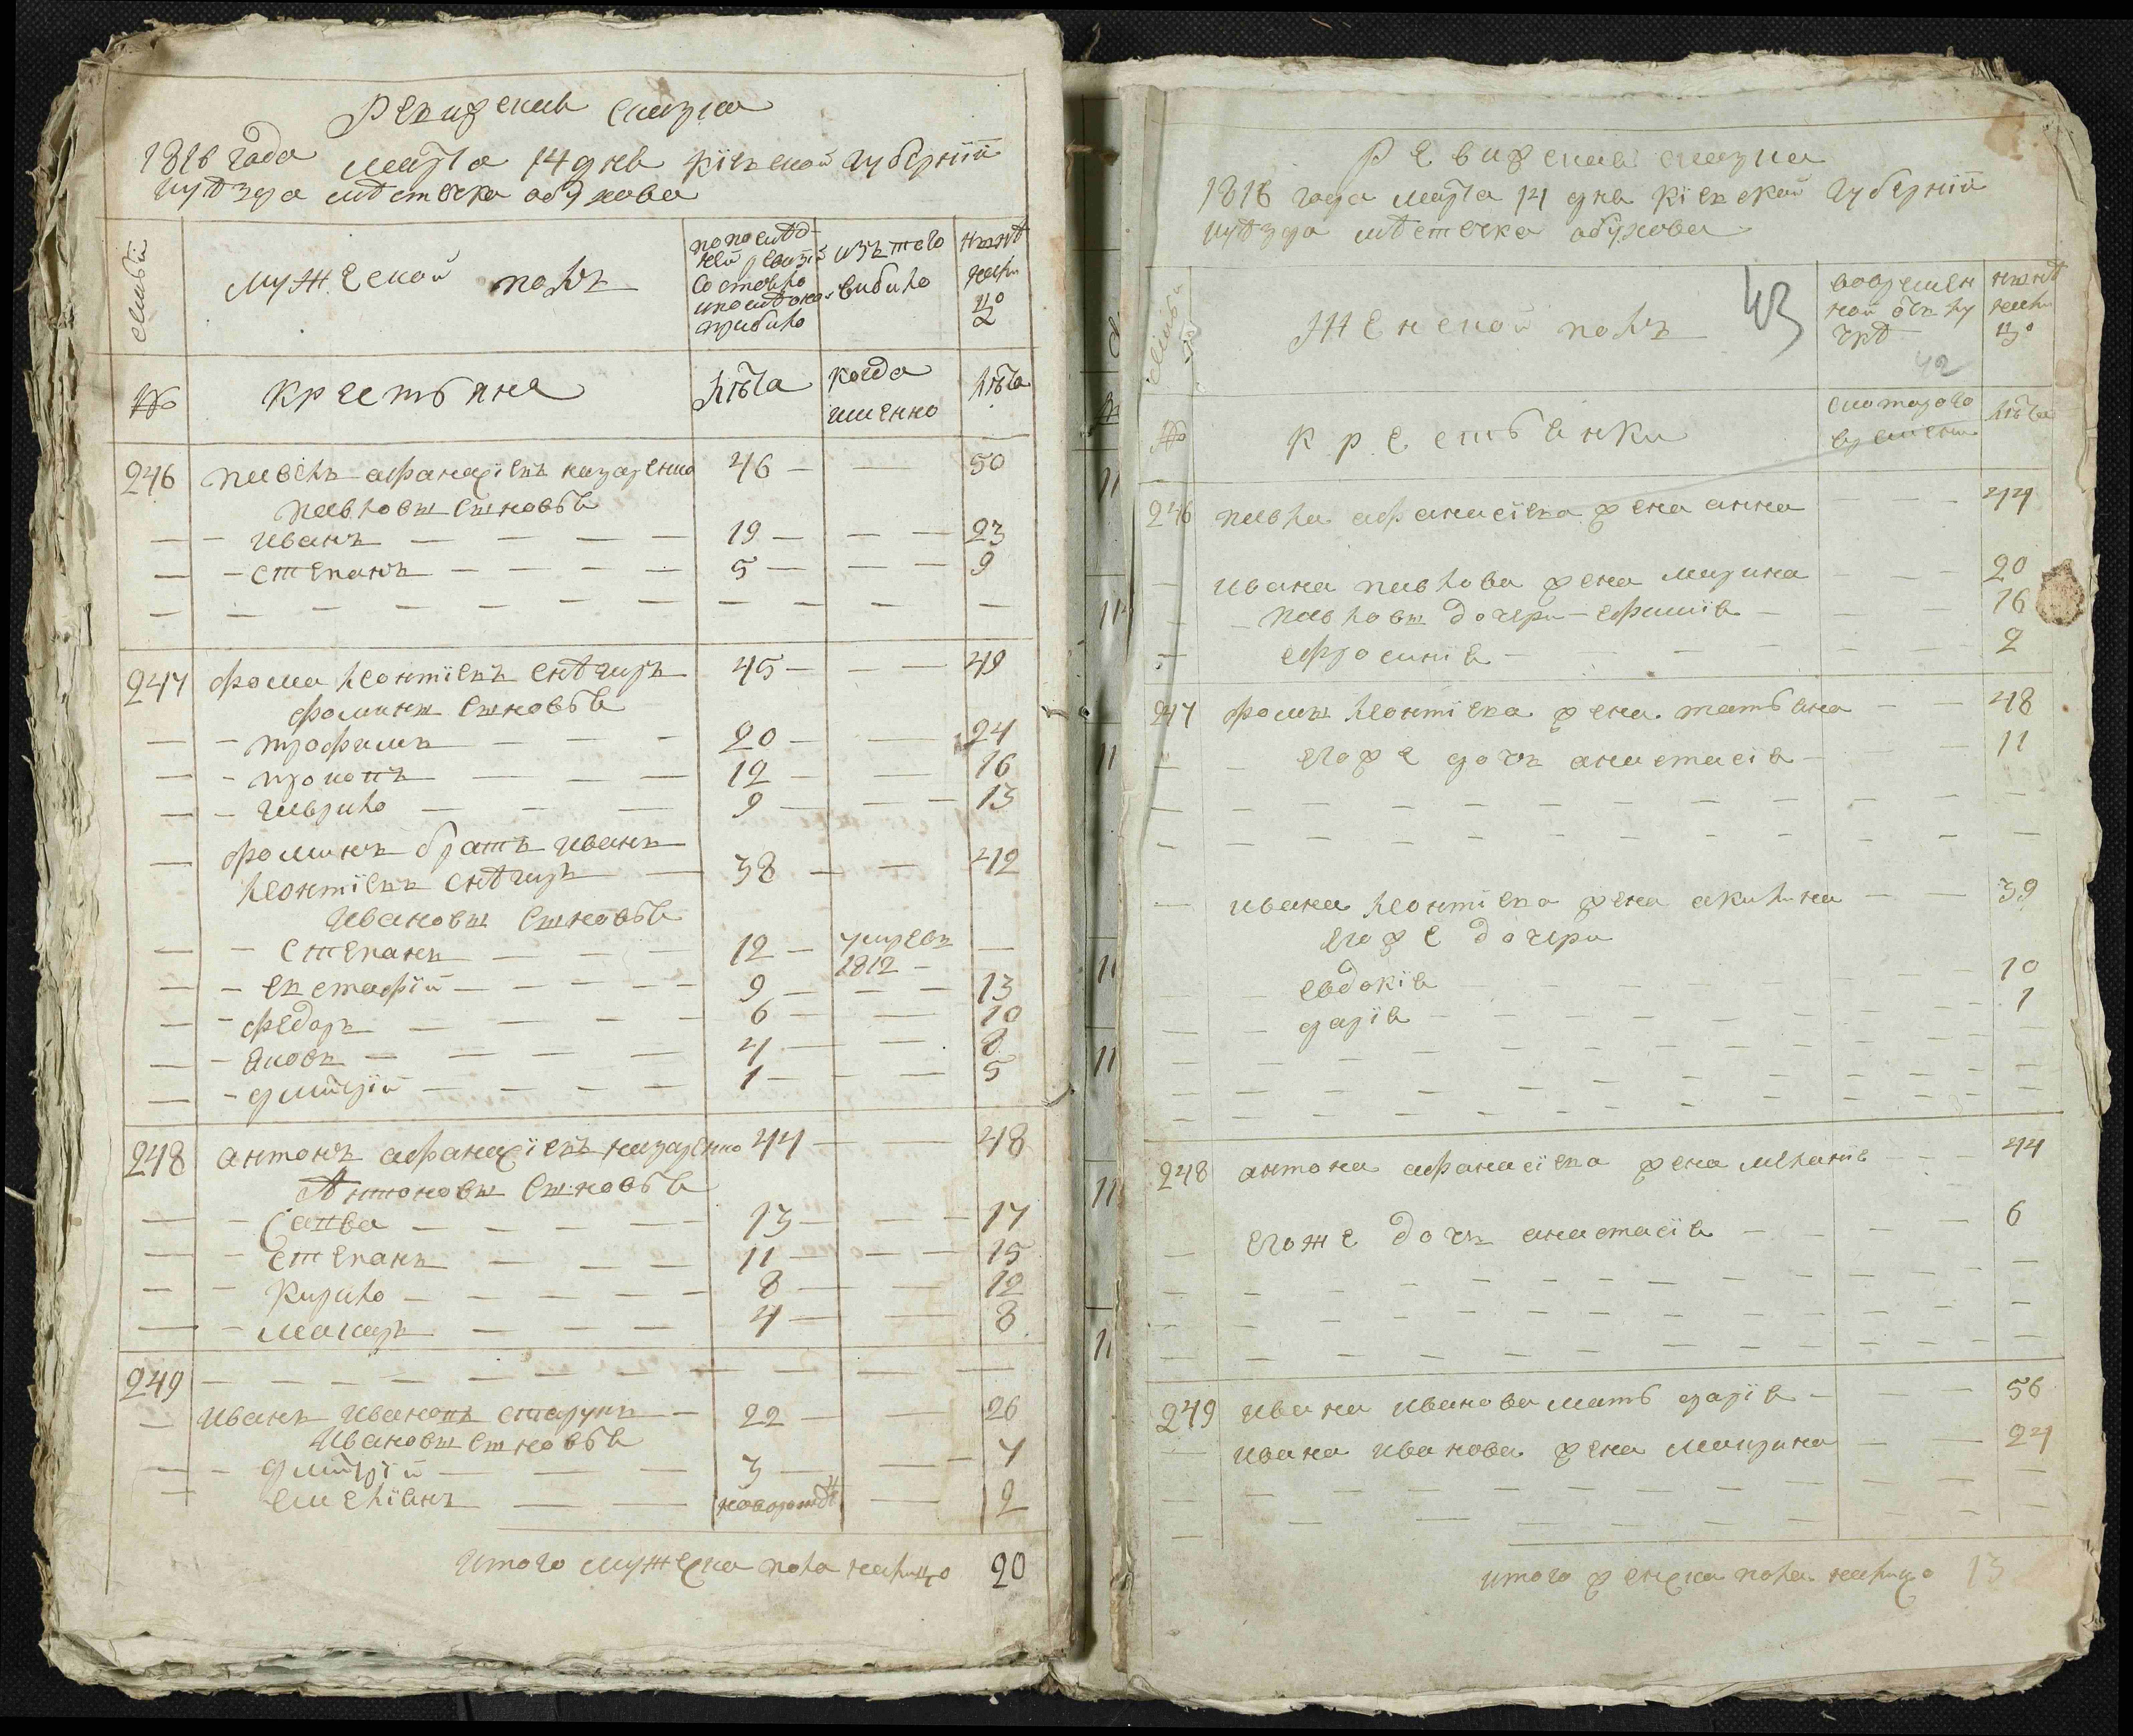 Ревизская сказка
1816 года марта 14 дня Кіевской губерніи
и уѣзда мѣстечка обухова
семьи
мужеской полъ
по послѣд-
ней ревизіи
состояло
и послѣ оной
прибыло
изъ того
выбыло
нынѣ
на ли
цо
№
крестьяне
лѣта
когда
именно
лѣта
246 павелъ афанасіевъ назаренко 46 — — 50
павловы сыновья
— — иванъ — 19 — — 23
— — степанъ — 5 — — 9
247 фома леонтіевъ снѣгиръ 45 — — 49
фомины сыновья
— — трофимъ — 20 — — 24
— — прокопъ — 12 — — 16
— — гаврило — 9 — — 13
— фоминъ братъ иванъ
леонтіевъ снѣгиръ — 38 — — 42
Ивановы сыновья
— — степанъ — 12 — умре въ —
1812 —
— — евстафій — 9 — — 13
— — федоръ — 6 — — 10
— — яковъ — 4 — — 8
— — дмитрій — 1 — — 5
248 антонъ афанасіевъ назаренко 44 — — 48
Антоновы сыновья
— — Савва — 13 — — 17
— — степанъ — 11 — — 15
— — Кирило — 8 — — 12
— — макаръ — 4 — — 8
249 — — — —
— Иванъ Ивановъ 22 — — 26
Ивановы сыновья
— — дмитрій — 3 — — 7
— емеліянъ — новорожд — 2
Итого мужеска пола налицо 20
Ревизская сказка
1816 года марта 14 дня Кіевской губерніи
и уѣзда мѣстечка обухова
семьи
Женской полъ
43
во времен
ной отлу
чкѣ
нынѣ
на ли
цо
42
№
крестьянки
с котораго
времени
лѣта
246 павла афанасіева жена анна — — 44
— ивана павлова жена марина — — 20
— — павловы дочери — ефимія — — 16
— ефросинія — — 2
247 фомы леонтіева жена татьяна — — 48
— — егоже дочь анастасія — 11
— ивана леонтіева жена акилина — — 39
егоже дочери
— — евдокія — 10
— — дарія — 1
248 антона афанасіева жена меланія — — 44
— егоже дочь анастасія — — 6
249 ивана иванова мать дарія — — 56
— ивана иванова жена макрина — — 24
итого женска пола налицо 13